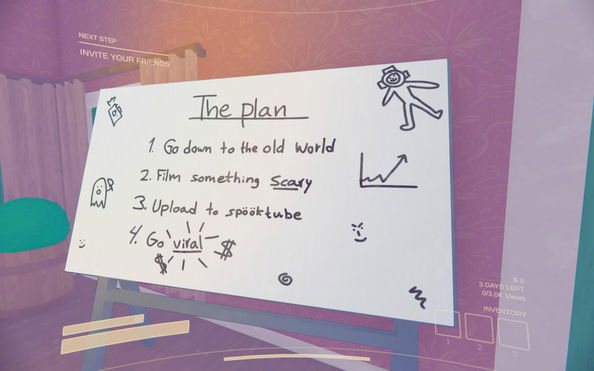 NEXT STEP
INVITE YOUR FRIENDS
The plan
1. Go down to the old World
2. Film something Scary
3. Upload to spöoktube
4. Go viral $
$
$ 0
3 DAYS LEFT
0/3.0K Views
INVENTORY
1 2 3